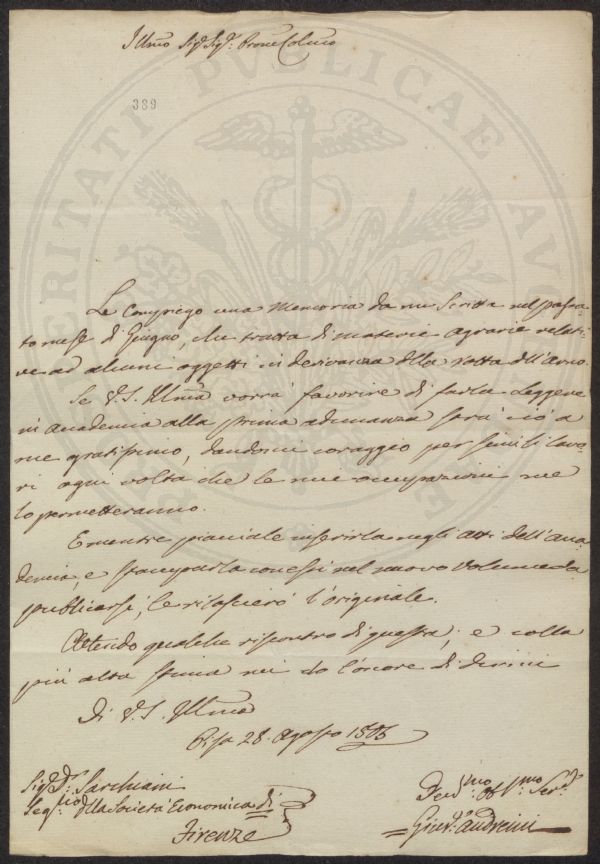 Illmo Sig.r Sig.r Prone Colmo
389
Le compiego una Memoria da me Scritta nel passa-
to mese di Giugno, che tratta di materie agrarie relati-
ve ad alcuni oggetti in derivanza della rotta dell'Arno.
Se V.S. Illma vorrà favorire di farla leggere
in Accademia alla prima adunanza sarà ciò a
me gratissimo, dandomi coraggio per simili lavo-
ri ogni volta che le mie occupazioni me
lo permetteranno.
E mentre piacciale inserirla negli atti dell'Acca-
demia, e stamparla con essi nel nuovo Volume da
publicarsi, le rilascierò l'originale.
Attendo qualche riscontro di questa; e colla
più alta stima mi do l'onore di dirmi
Di V.S. Illma
Pisa 28. Agosto
Sig.r D.r Sarchiani
Seg.rio della Società Economica di
Firenze
Dev.mo Obb.mo Ser.e
Andreini
PROSPERITATI PVBLICAE AVGENDAE